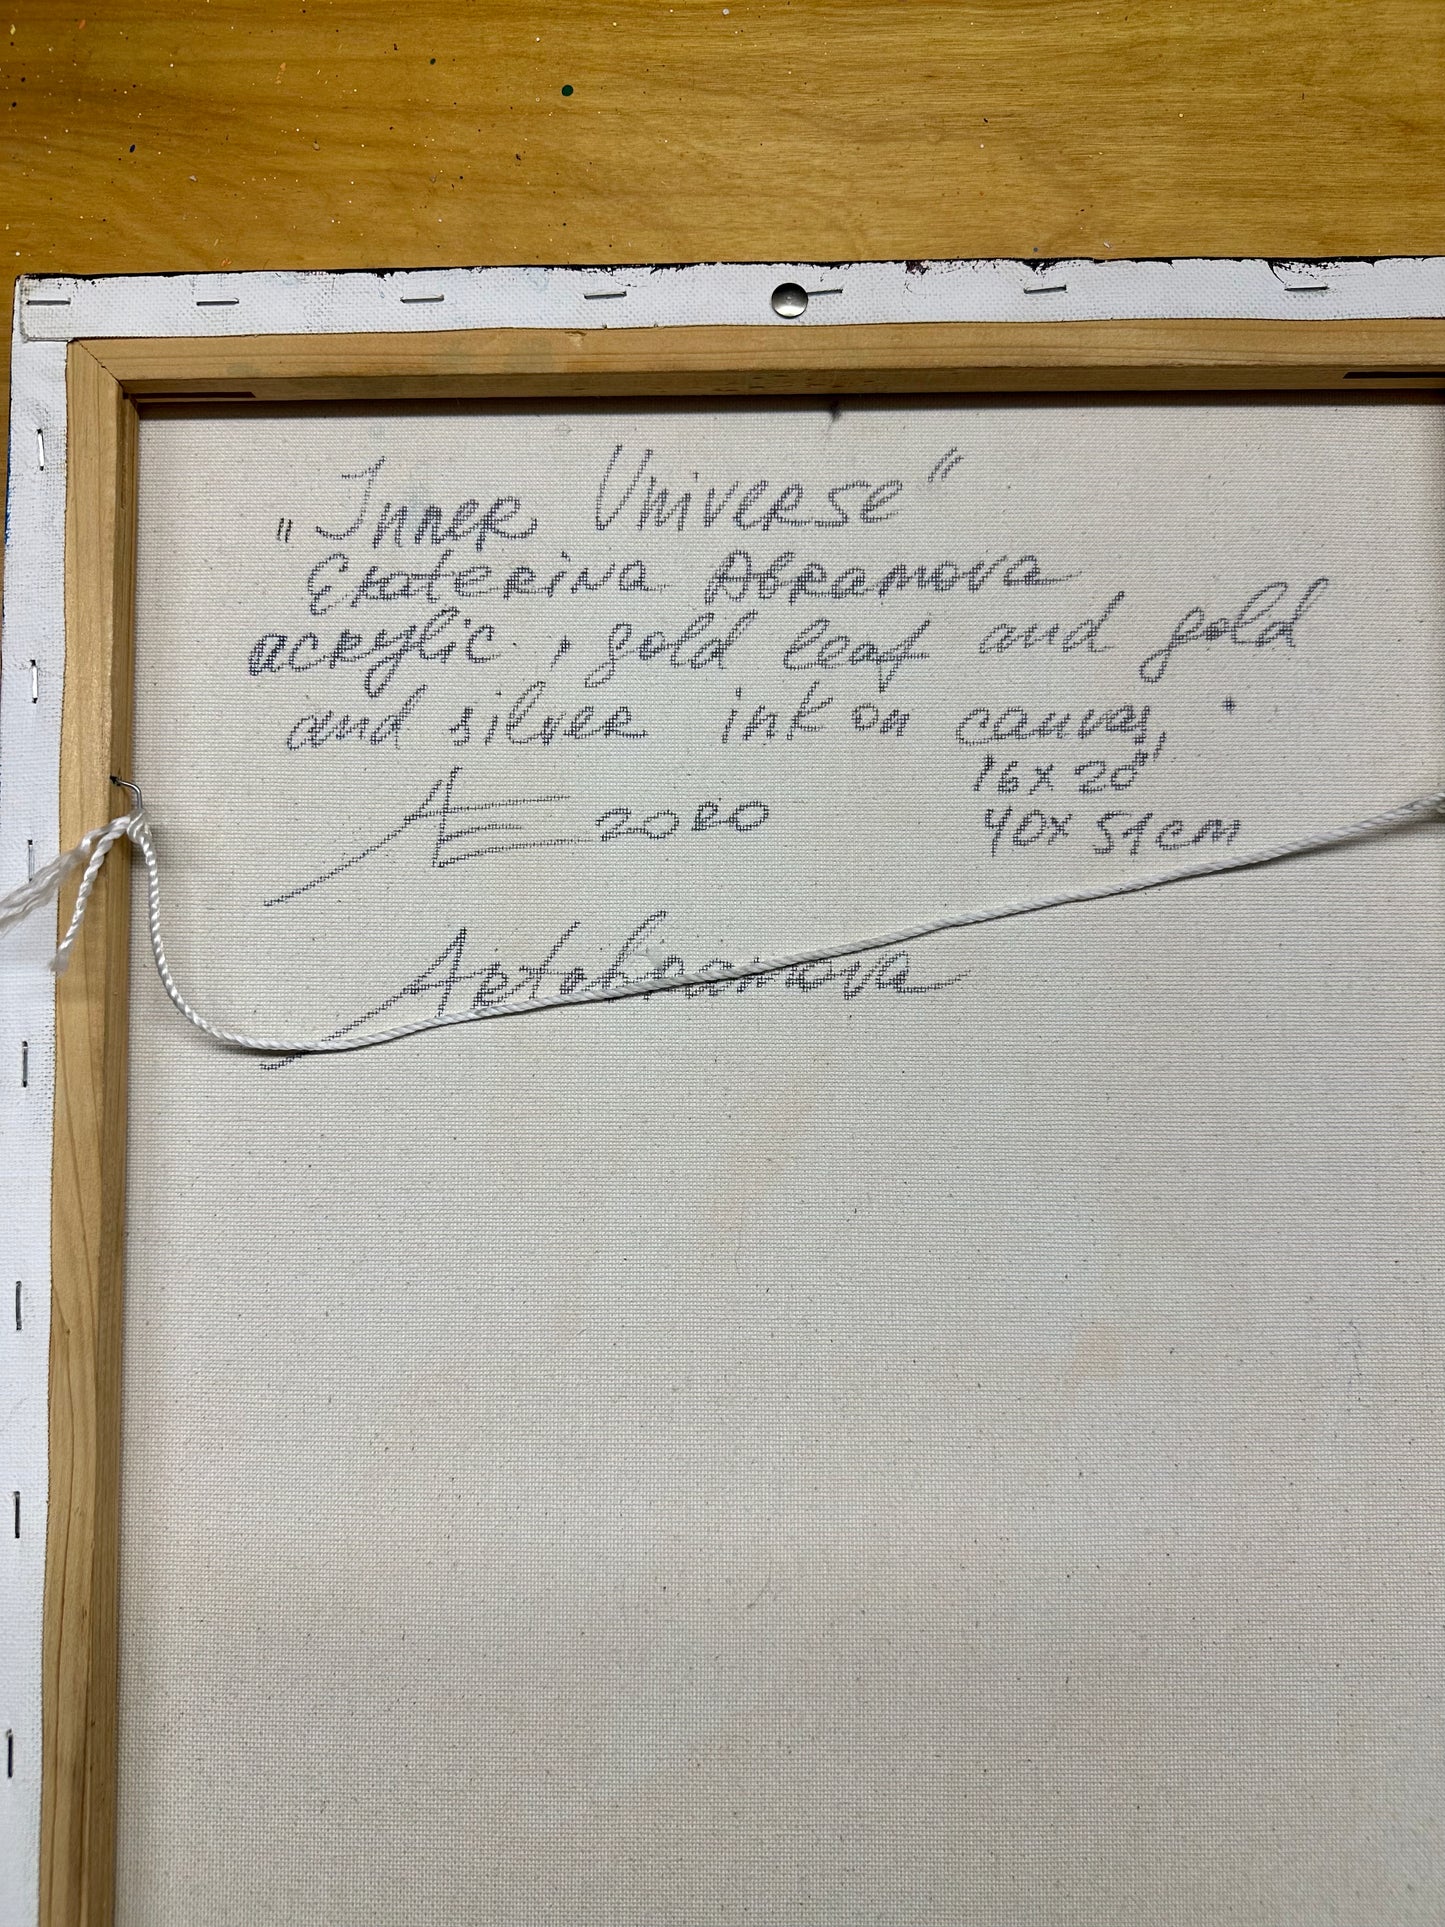 „Inner Universe"
Ekaterina Abramova
acrylic, gold leaf and gold
and silver ink on canvas,
16 x 20"
40 x 51 cm
AE 2020
Artabramova